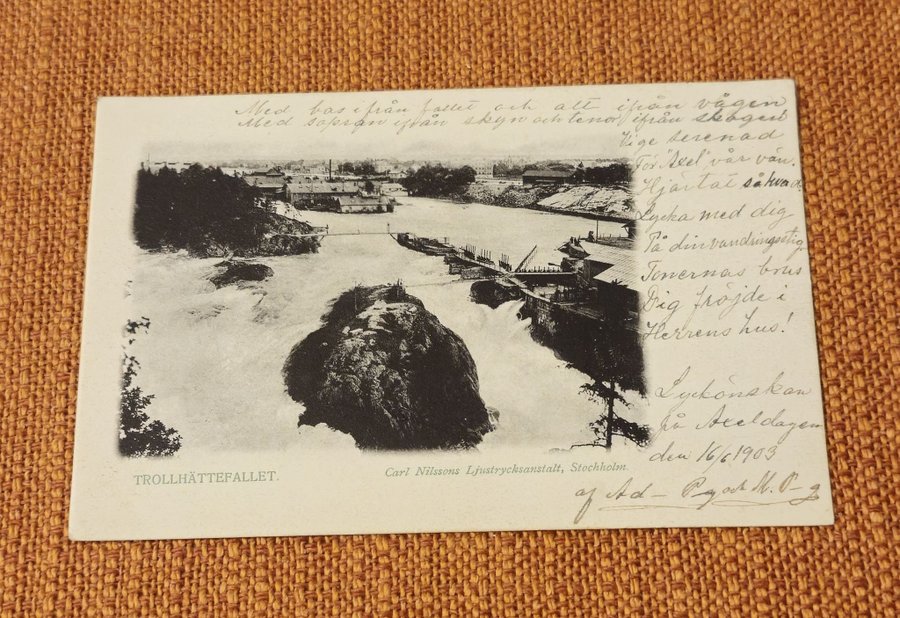 Med bas ifrån fallet och alt ifrån vågen
Med sopran ifrån skyn och tenor ifrån skogen
Vige serenad
För "Axel" vår vän.
Hjärtat så kvad
Lycka med dig
På din vandringsstig
Tonernas brus
Dig fröjde i
Herrens hus!
Lyckönskan
på Axeldagen
den 16/6 1903
af Ad- P
TROLLHÄTTEFALLET.
Carl Nilssons Ljustrycksanstalt, Stockholm.